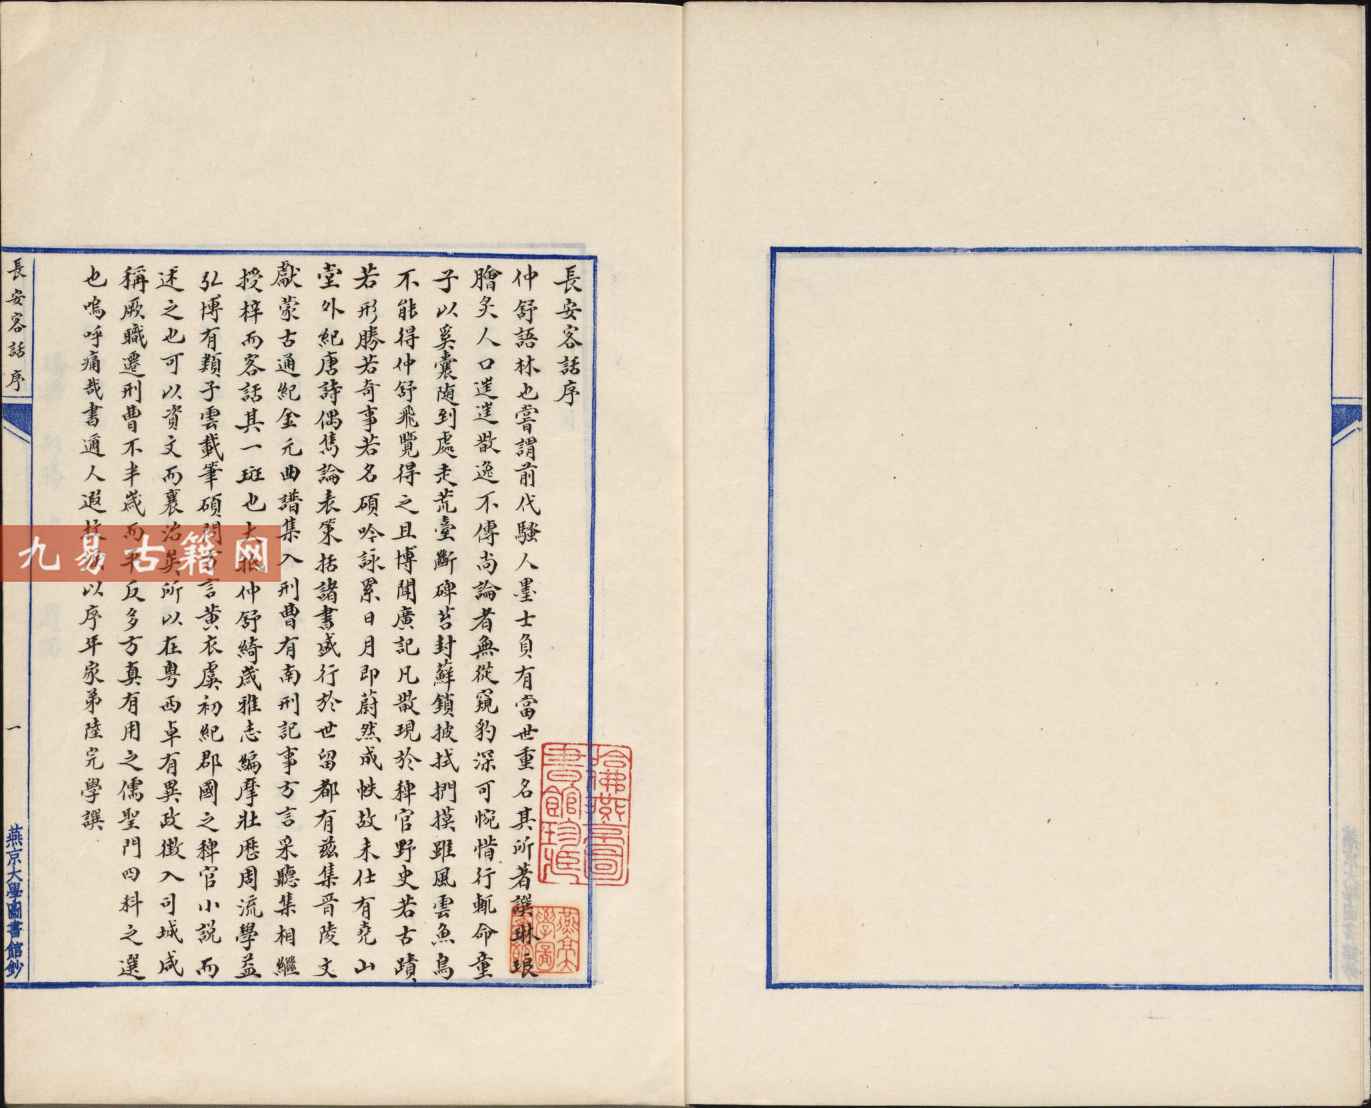 長安客話序
仲舒語林也嘗謂前代騷人墨士負有當世重名其所著譔琳琅
膾炙人口迷迷散逸不傳尚論者無從窺豹深可惋惜行輒命童
子以奚囊随到處走荒臺斷碑苔封蘚鎖披拭捫摸雖風雲魚鳥
不能得仲舒飛覽得之且博聞廣記凡散現於稗官野史若古蹟
若形勝若奇事若名碩吟詠累日月即蔚然成帙故未仕有堯山
堂外紀唐詩偶雋論表策括諸書盛行於世留都有茲集晉陵文
獻蒙古通紀金元曲譜集入刑曹有南刑記事方言采聽集相繼
授梓而客話其一斑也大 仲舒綺歲雅志編摩壯歷周流學益
弘博有類子雲載筆碩 言黃衣虞初紀郡國之稗官小說而
述之也可以資文而襄治矣所以在粤西卓有異政徵入司城咸
稱厥職遷刑曹不半歲而平反多方真有用之儒聖門四科之選
也嗚呼痛哉書邇人遐 以序年家弟陸完學譔
長安客話 序
一
燕京大學圖書館鈔
哈佛燕京圖書館珍藏
九易古籍网